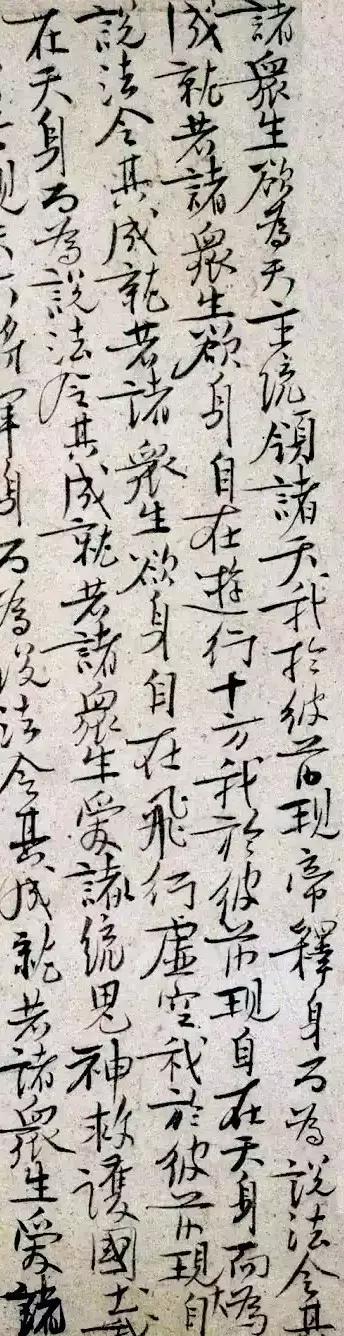 諸眾生欲為天主統領諸天我於彼前現帝釋身而為說法令其
成就若諸眾生欲身自在遊行十方我於彼前現自在天身而為
說法令其成就若諸眾生欲身自在飛行虛空我於彼前現大自
在天身而為說法令其成就若諸眾生愛諸統鬼神救護國土我
現天大將軍身而為說法令其成就若諸眾生愛諸